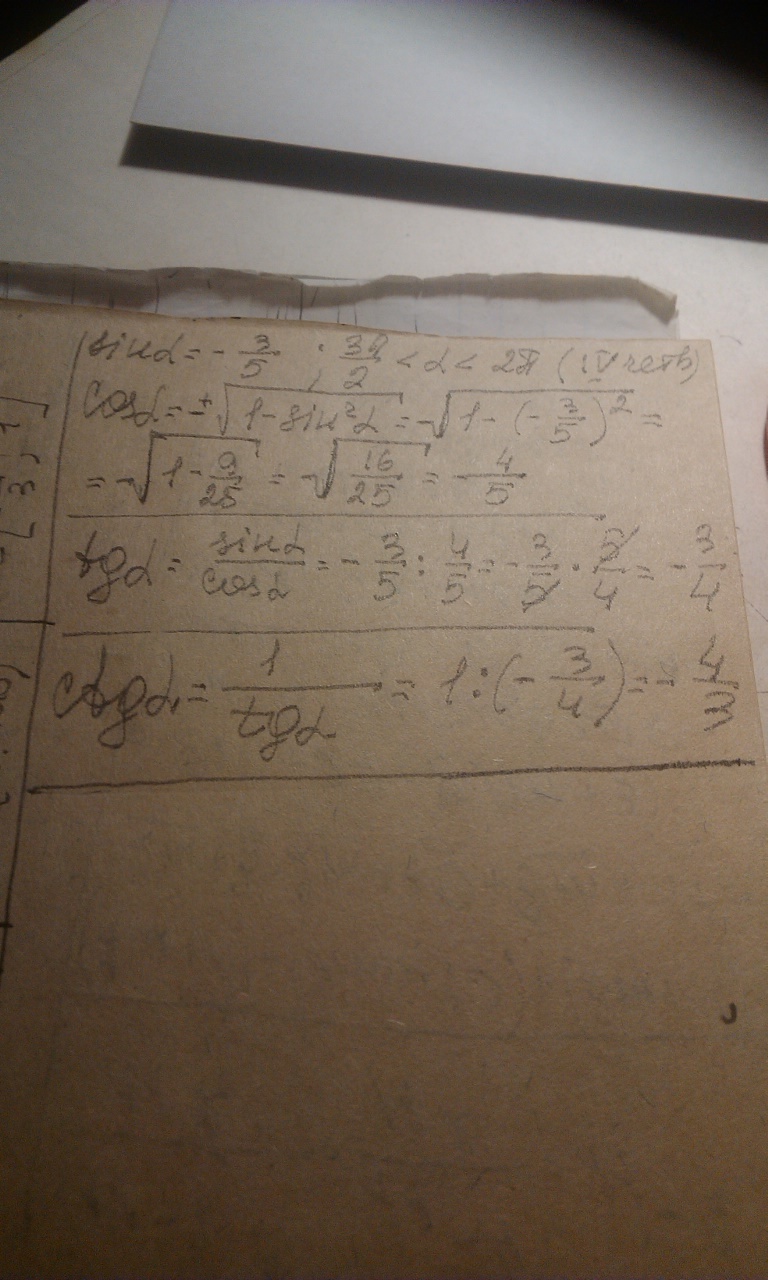 sin α = - 3/5 ; 3π/2 < α < 2π (IV четв)
cos α = ± √(1 - sin²α) = -√(1 - (-3/5)²) =
= -√(1 - 9/25) = -√(16/25) = - 4/5
tg α = sin α / cos α = - 3/5 : 4/5 = - 3/5 · 5/4 = - 3/4
ctg α = 1 / tg α = 1 : (- 3/4) = - 4/3